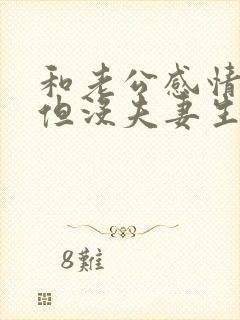 和老公感情
但没夫妻生
8難